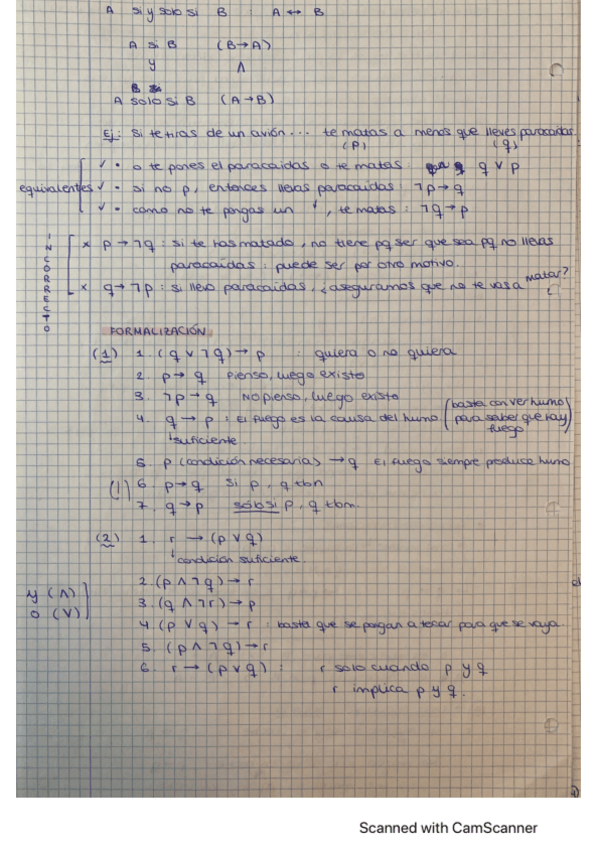 A si y solo si B : A ↔ B
A si B (B→A)
y ∧
B
A solo si B (A→B)
Ej: si te tiras de un avión... te matas a menos que lleves paracaidas.
(p) (q)
equivalentes
✓ • o te pones el paracaidas o te matas: q ∨ p
✓ • si no p, entonces llevas paracaidas: ¬p→q
✓ • como no te pongas un ↑, te matas: ¬q→p
INCORRECTO
x p→¬q: si te has matado, no tiene pq ser que sea pq no llevas
paracaidas: puede ser por otro motivo.
x q→¬p: si llevo paracaidas, ¿aseguramos que no te vas a matar?
FORMALIZACIÓN
(1) 1. (q ∨ ¬q)→ p : quiera o no quiera
2. p→ q Pienso, luego existo
3. ¬p→q No pienso, luego existo
4. q→p : El fuego es la causa del humo (basta con ver humo para saber que hay fuego)
↓suficiente
5. p (condición necesaria) →q El fuego siempre produce humo
(1) 6. p→q Si p, q tbn
7. q→p sólo si p, q tbm.
(2) 1. r → (p ∨ q)
↓condición suficiente.
2. (p ∧ ¬q)→ r
3. (q ∧ ¬r)→p
4 (p ∨ q) → r : basta que se pongan a tocar para que se vaya
5. (p ∧ ¬q)→r
6. r→(p ∨ q) : r solo cuando p y q
r implica p y q.
y (∧)
o (∨)
Scanned with CamScanner